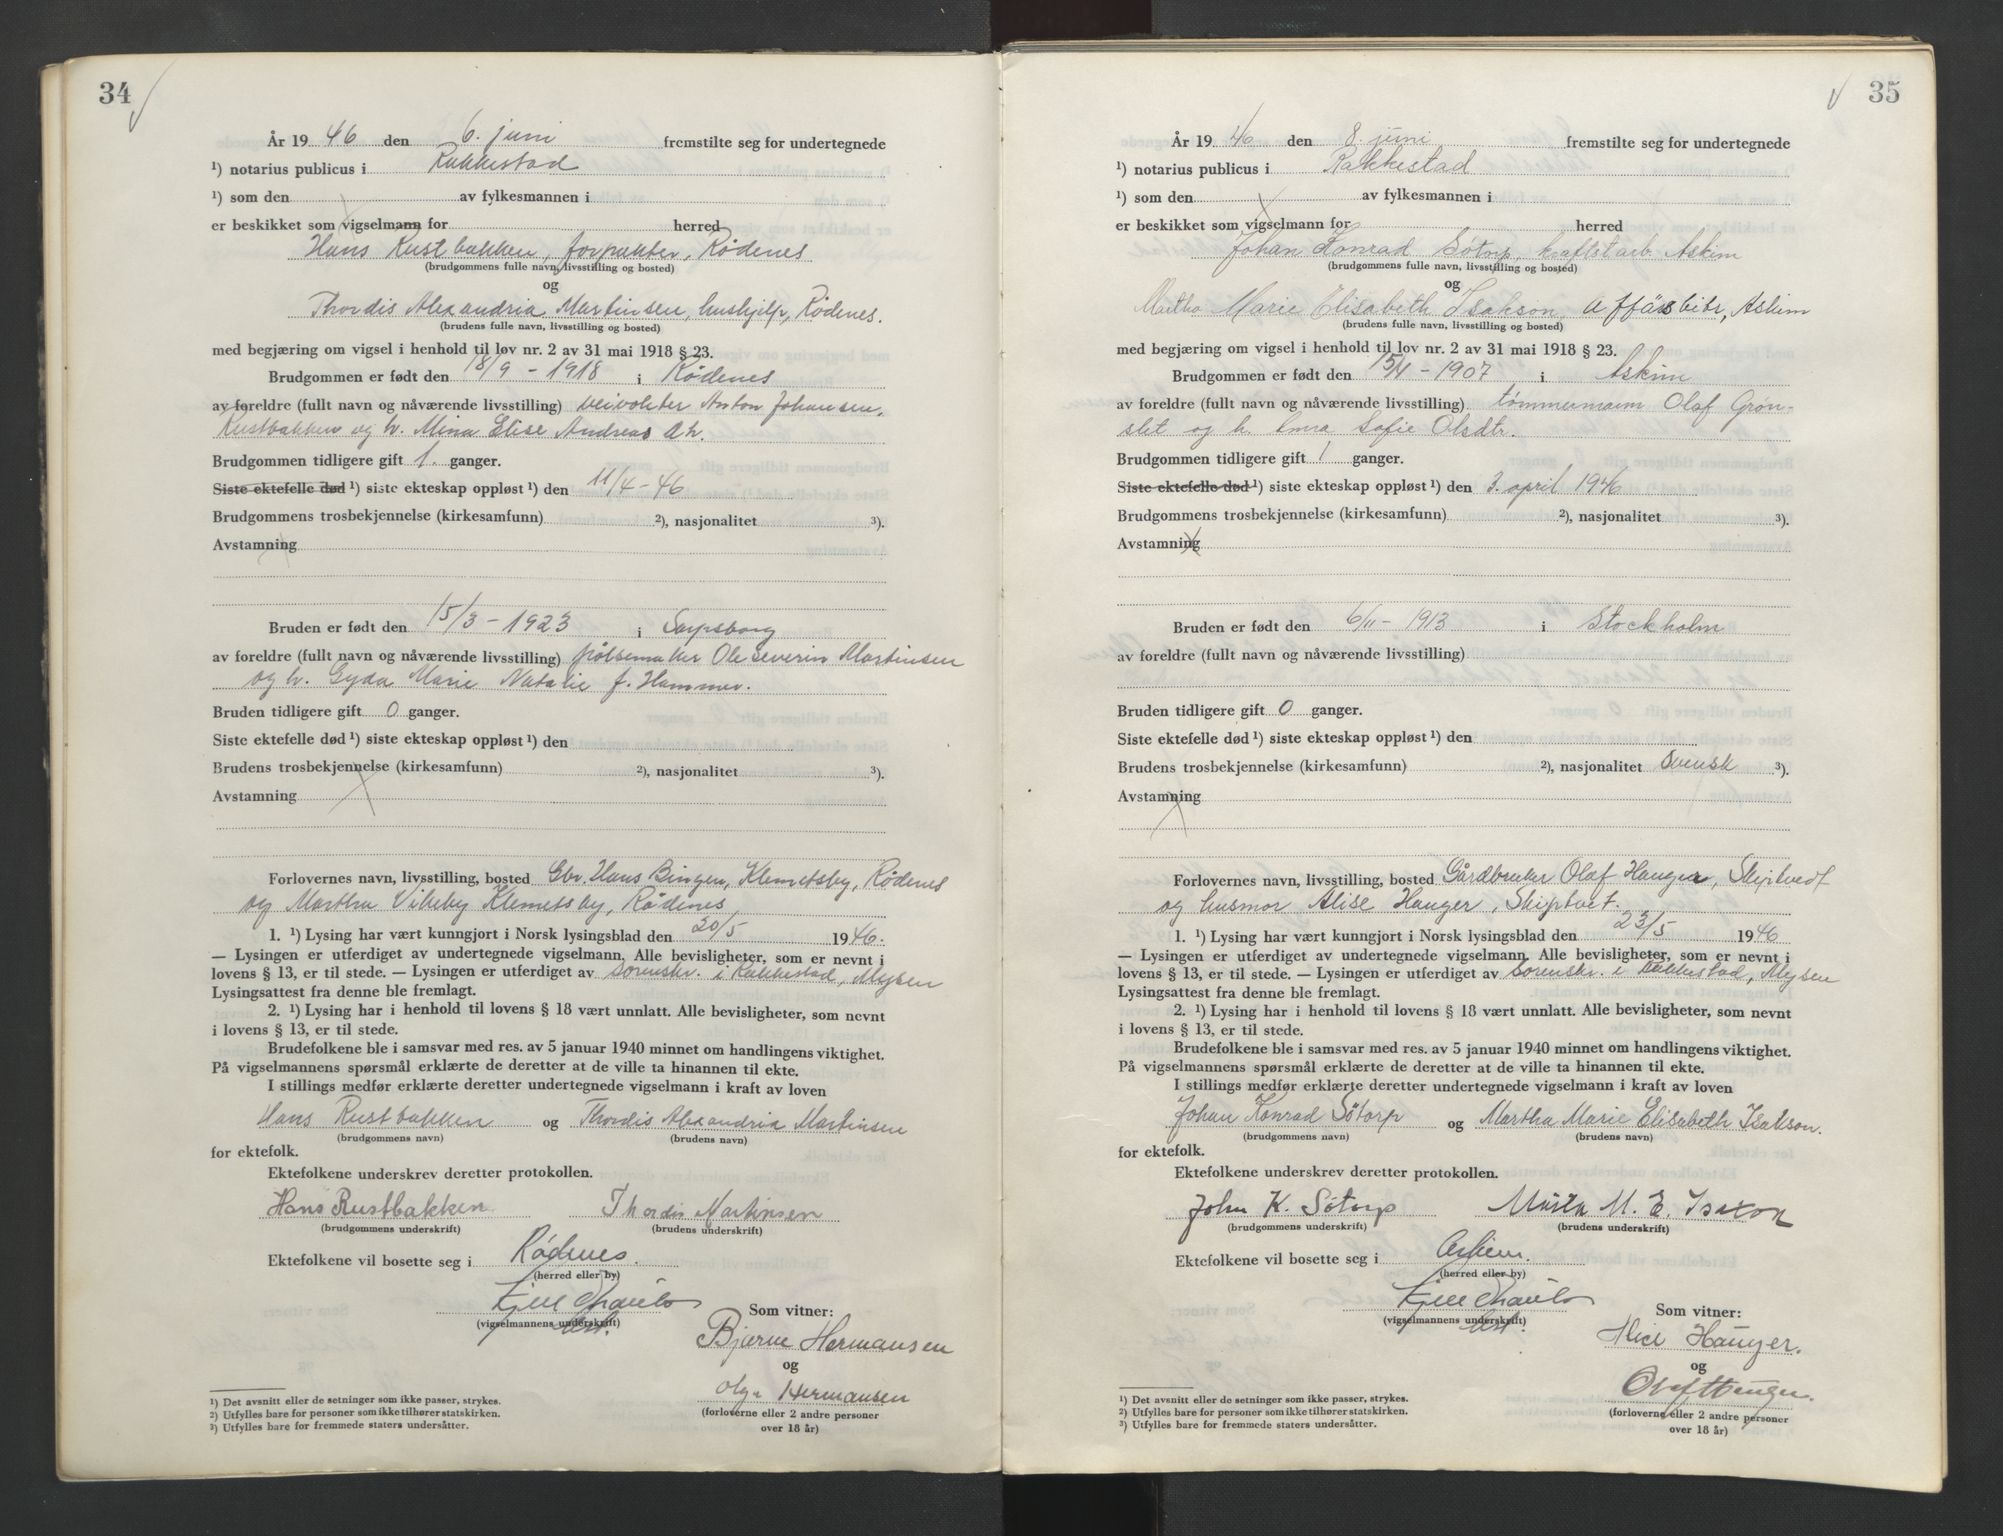 34
År 19 46 den 6. juni fremstilte seg for undertegnede
¹) notarius publicus i Rakkestad
¹) som den av fylkesmannen i
er beskikket som vigselmann for herred
Hans Rustbakken, forpakter, Rødenes
(brudgommens fulle navn, livsstilling og bosted)
og
Thordis Alexandria Martinsen, hushjelp, Rødenes.
(brudens fulle navn, livsstilling og bosted)
med begjæring om vigsel i henhold til lov nr. 2 av 31 mai 1918 § 23.
Brudgommen er født den 18/9 - 1918 i Rødenes
av foreldre (fullt navn og nåværende livsstilling) veivokter Anton Johansen
Rustbakken og h. Mina Elise Andreasdtr.
Brudgommen tidligere gift 1. ganger.
Siste ektefelle død ¹) siste ekteskap oppløst ¹) den 11/4 - 46
Brudgommens trosbekjennelse (kirkesamfunn) ²), nasjonalitet ³).
Avstamning
Bruden er født den 15/3 - 1923 i Sarpsborg
av foreldre (fullt navn og nåværende livsstilling) pølsemaker Ole Severin Martinsen
og h. Gyda Marie Natalie f. Hammer.
Bruden tidligere gift 0 ganger.
Siste ektefelle død ¹) siste ekteskap oppløst ¹) den
Brudens trosbekjennelse (kirkesamfunn) ²), nasjonalitet ³).
Avstamning
Forlovernes navn, livsstilling, bosted Gbr. Hans Bingen, Klemetsby, Rødenes
og Martha Vikeby Klemetsby, Rødenes
1. ¹) Lysing har vært kunngjort i Norsk lysingsblad den 20/5 1946.
— Lysingen er utferdiget av undertegnede vigselmann. Alle bevisligheter, som er nevnt i
lovens § 13, er til stede. — Lysingen er utferdiget av Sorenskr. i Rakkestad, Mysen
Lysingsattest fra denne ble fremlagt.
2. ¹) Lysing har i henhold til lovens § 18 vært unnlatt. Alle bevisligheter, som nevnt
i lovens § 13, er til stede.
Brudefolkene ble i samsvar med res. av 5 januar 1940 minnet om handlingens viktighet.
På vigselmannens spørsmål erklærte de deretter at de ville ta hinannen til ekte.
I stillings medfør erklærte deretter undertegnede vigselmann i kraft av loven
Hans Rustbakken og Thordis Alexandria Martinsen
(brudgommens navn) (brudens navn)
for ektefolk.
Ektefolkene underskrev deretter protokollen.
Hans Rustbakken Thordis Martinsen
(brudgommens underskrift) (brudens underskrift)
Ektefolkene vil bosette seg i Rødenes
(herred eller by)
Som vitner:
(vigselmannens underskrift)
Bjarne Hermansen
og
Olga Hermansen
(forloverne eller 2 andre personer
over 18 år)
¹) Det avsnitt eller de setninger som ikke passer, strykes.
²) Utfylles bare for personer som ikke tilhører statskirken.
³) Utfylles bare for fremmede staters undersåtter.
35
År 19 46 den 8. juni fremstilte seg for undertegnede
¹) notarius publicus i Rakkestad
¹) som den av fylkesmannen i
er beskikket som vigselmann for herred
Johan Konrad Søtorp, kraftst.arb. Askim
(brudgommens fulle navn, livsstilling og bosted)
og
Martha Marie Elisabeth Isakson, affärsbitr, Askim
(brudens fulle navn, livsstilling og bosted)
med begjæring om vigsel i henhold til lov nr. 2 av 31 mai 1918 § 23.
Brudgommen er født den - 1907 i Askim
av foreldre (fullt navn og nåværende livsstilling) tømmermann Olaf Grøn-
slet og h. Sofie Olsdtr.
Brudgommen tidligere gift 1 ganger.
Siste ektefelle død ¹) siste ekteskap oppløst ¹) den 3. april 1946
Brudgommens trosbekjennelse (kirkesamfunn) ²), nasjonalitet ³).
Avstamning
Bruden er født den 6/11 - 1913 i Stockholm
av foreldre (fullt navn og nåværende livsstilling)
Bruden tidligere gift 0 ganger.
Siste ektefelle død ¹) siste ekteskap oppløst ¹) den
Brudens trosbekjennelse (kirkesamfunn) ²), nasjonalitet svensk ³).
Avstamning
Forlovernes navn, livsstilling, bosted Gårdbruker Olaf Hauger, Skiptvedt
og husmor Alise Hauger, Skiptvet.
1. ¹) Lysing har vært kunngjort i Norsk lysingsblad den 23/5 1946
— Lysingen er utferdiget av undertegnede vigselmann. Alle bevisligheter, som er nevnt i
lovens § 13, er til stede. — Lysingen er utferdiget av Sorenskr. i Rakkestad, Mysen
Lysingsattest fra denne ble fremlagt.
2. ¹) Lysing har i henhold til lovens § 18 vært unnlatt. Alle bevisligheter, som nevnt
i lovens § 13, er til stede.
Brudefolkene ble i samsvar med res. av 5 januar 1940 minnet om handlingens viktighet.
På vigselmannens spørsmål erklærte de deretter at de ville ta hinannen til ekte.
I stillings medfør erklærte deretter undertegnede vigselmann i kraft av loven
Johan Konrad Søtorp og Martha Marie Elisabeth Isakson.
(brudgommens navn) (brudens navn)
for ektefolk.
Ektefolkene underskrev deretter protokollen.
John K. Søtorp Märta M. E. Isaxon
(brudgommens underskrift) (brudens underskrift)
Ektefolkene vil bosette seg i Askim.
(herred eller by)
Som vitner:
(vigselmannens underskrift)
Alice Hauger.
og
Olaf Hauger.
(forloverne eller 2 andre personer
over 18 år)
¹) Det avsnitt eller de setninger som ikke passer, strykes.
²) Utfylles bare for personer som ikke tilhører statskirken.
³) Utfylles bare for fremmede staters undersåtter.